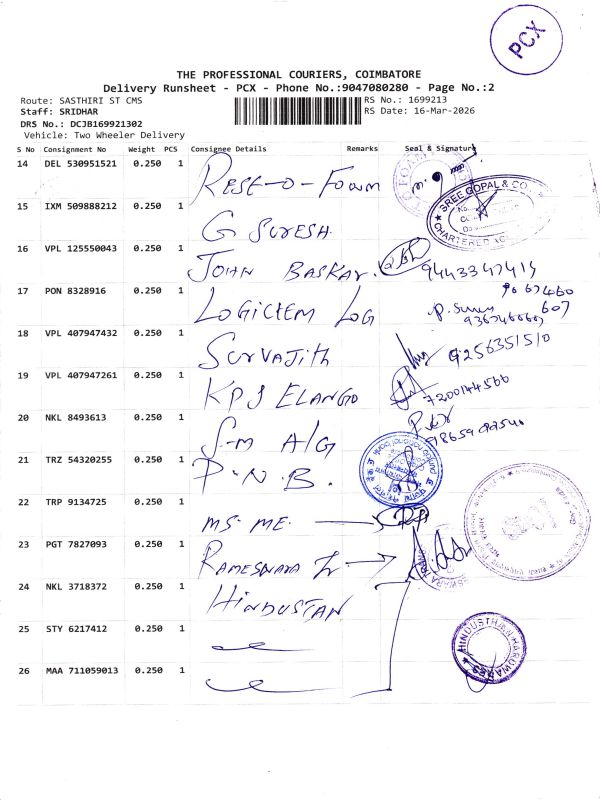 PCX
THE PROFESSIONAL COURIERS, COIMBATORE
Delivery Runsheet - PCX - Phone No.:9047080280 - Page No.:2
Route: SASTHIRI ST CMS
RS No.: 1699213
Staff: SRIDHAR
RS Date: 16-Mar-2026
DRS No.: DCJB169921302
Vehicle: Two Wheeler Delivery
S No Consignment No Weight PCS Consignee Details Remarks Seal & Signature
14 DEL 530951521 0.250 1 REST-O-FOWM
15 IXM 509888212 0.250 1 G SURESH SREE GOPAL & CO CHARTERED
16 VPL 125550043 0.250 1 JOHN BASKAR. 9443347414
17 PON 8328916 0.250 1 LOGICHEM LOG
18 VPL 407947432 0.250 1 SURVAJITH 9256351510
19 VPL 407947261 0.250 1 KPS ELANGO 7200144566
20 NKL 8493613 0.250 1 S-M A/G
21 TRZ 54320255 0.250 1 P.N.B.
22 TRP 9134725 0.250 1 MS. ME.
23 PGT 7827093 0.250 1 RAMESWARA Tr
24 NKL 3718372 0.250 1 HINDUSTAN
25 STY 6217412 0.250 1
26 MAA 711059013 0.250 1
HINDUSTHAN HARDWARES